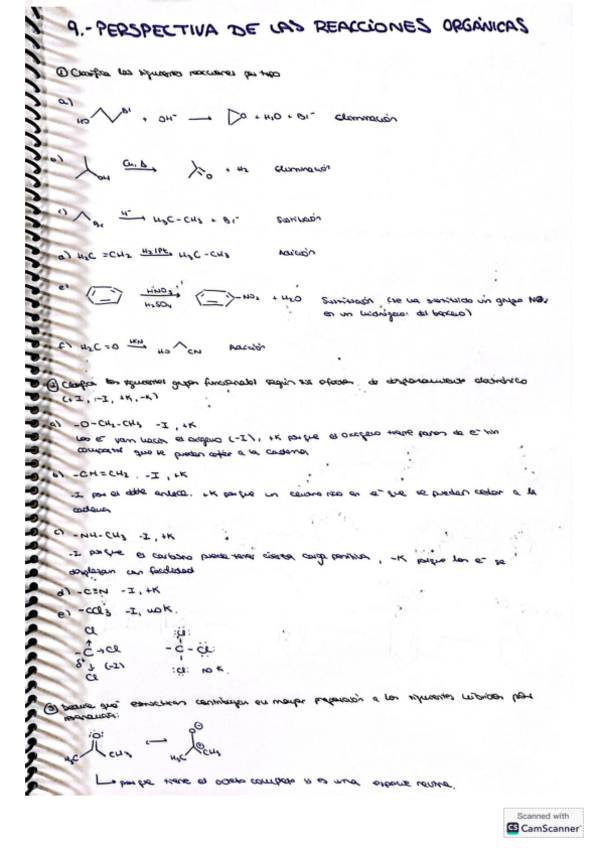 9.- PERSPECTIVA DE LAS REACCIONES ORGÁNICAS
① Clasifica las siguientes reacciones por tipo
a)
HO Br + OH⁻ → O + H₂O + Br⁻ Eliminación
b)
OH Cu, Δ O + H₂ Eliminación
c)
Br H⁻ H₃C-CH₃ + Br⁻ Sustitución
d) H₂C=CH₂ H₂/Pt H₃C-CH₃ Adición
e)
HNO₃ H₂SO₄ -NO₂ + H₂O Sustitución (se ha sustituido un grupo NO₂
en un hidrógeno del benceno)
f) H₂C=O HCN HO CN Adición
② Clasifica los siguientes grupos funcionales según sus efectos de desplazamiento electrónico
(+I, -I, +K, -K)
a) -O-CH₂-CH₃ -I, +K
Los e⁻ van hacia el oxígeno (-I), +K porque el oxígeno tiene pares de e⁻ sin
compartir que se pueden ceder a la cadena
b) -CH=CH₂ -I, +K
-I por el doble enlace. +K porque un centro rico en e⁻ que se pueden ceder a la
cadena
c) -NH-CH₃ -I, +K
-I porque el carbono puede tener cierta carga positiva, -K porque los e⁻ se
desplazan con facilidad
d) -C≡N -I, +K
e) -CCl₃ -I, no K.
Cl :Cl:
-C→Cl -C-Cl:
δ⁺ (-I)
Cl :Cl: no K
③ Deduce que estructuras contribuyen en mayor proporción a los siguientes híbridos por
resonancia:
:O: O⊖
H₃C CH₃ ⟷ H₃C ⊕ CH₃
porque tiene el octeto completo y es una especie neutra.
Scanned with
CS CamScanner